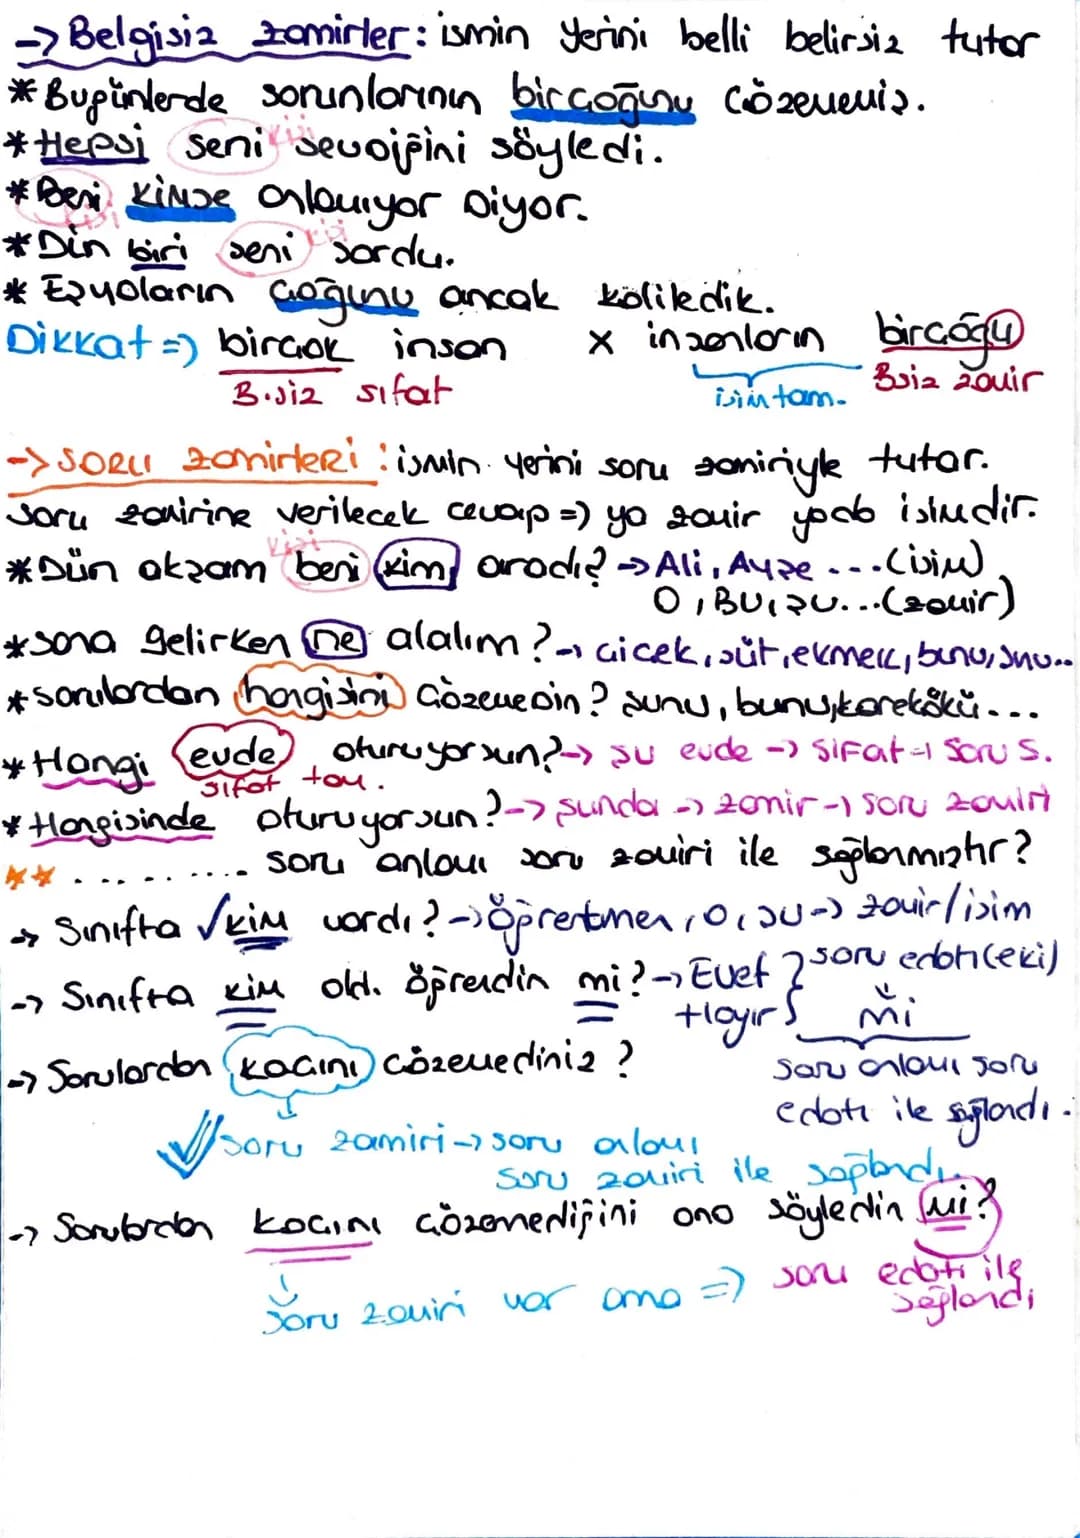 → Belgisiz zamirler: ismin yerini belli belirsiz tutar
* Bugünlerde sorunlarının birçoğunu çözememiş.
* Hepsi seni sevdiğini söyledi. kişi
* Beni kimse anlamıyor diyor. kişi
* Dün biri seni sordu. kişi
* Eşyaların çoğunu ancak koliledik.
Dikkat => birçok insan x insanların birçoğu
B.siz sıfat isim tam. B.siz zamir
→ SORU zamirleri: ismin yerini soru zamiriyle tutar.
soru zamirine verilecek cevap => ya zamir yada isimdir.
kişi
* Dün akşam beni kim aradı? → Ali, Ayşe ... (isim)
O, BU, ŞU... (zamir)
* sana gelirken ne alalım? → çiçek, süt, ekmek, bunu, şunu..
* sorulardan hangisini çözemedin? şunu, bunu, karekökü...
* Hangi evde oturuyorsun? → şu evde → sıfat → Soru S.
sıfat tam.
* Hangisinde oturuyorsun? → şunda → zamir → soru zamiri
** ......... soru anlamı soru zamiri ile sağlanmıştır?
→ Sınıfta √kim vardı? → Öğretmen, O, şu → zamir/isim
→ Sınıfta kim old. öğrendin mi? → Evet } soru edatı (eki)
Hayır } mi
→ Sorulardan kaçını çözemediniz? soru anlamı soru
edatı ile sağlandı.
soru zamiri → soru anlamı
soru zamiri ile sağlandı.
→ Sorulardan kaçını çözemediğini ona söyledin mi?
soru zamiri var ama => soru edatı ile
sağlandı